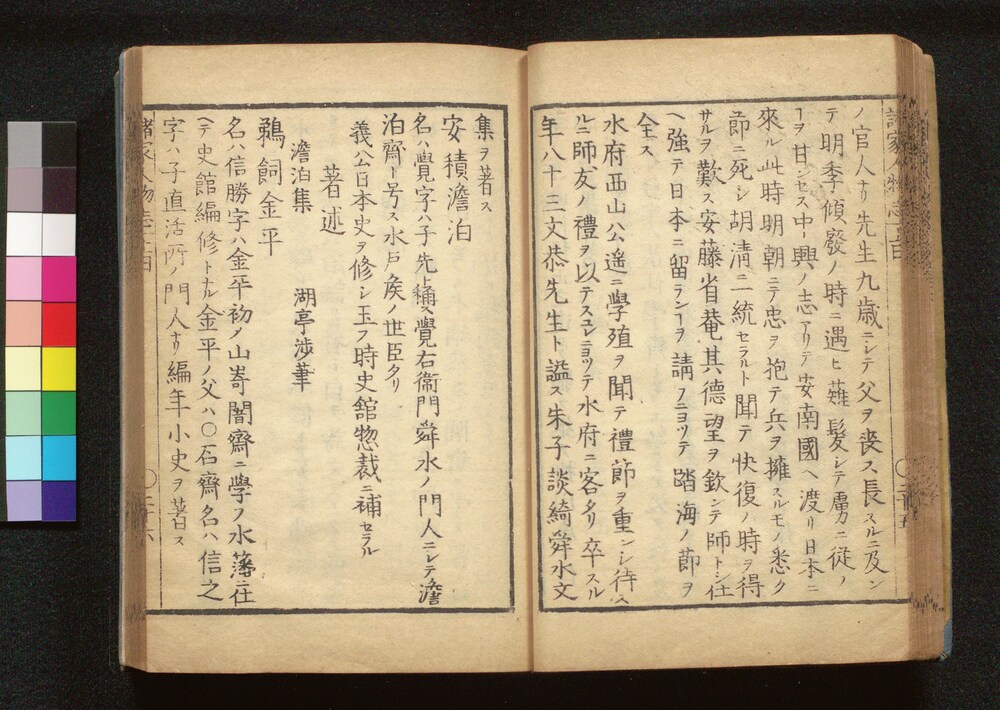 ノ官人ナリ先生九歳ニシテ父ヲ喪ス長スルニ及ン
テ明季傾廢ノ時ニ遇ヒ薙髮シテ虜ニ從ノ
ヿヲ甘ンセス中興ノ志アリテ安南國ヘ渡リ日本ニ
來ル此時明朝ニテ忠ヲ抱テ兵ヲ擁スルモノ悉ク
節ニ死シ胡清ニ統セラルト聞テ快復ノ時ヲ得
サルヲ歎ス安藤省菴其德望ヲ欽シテ師トシ仕
ヘ強テ日本ニ留ランヿヲ請フニヨツテ踏海ノ節ヲ
全ス
水府西山公遙ニ學殖ヲ聞テ禮節ヲ重ンシ待ス
ルニ師友ノ禮ヲ以テスコレニヨツテ水府ニ客タリ卒スル
年八十三文恭先生ト謚ス朱子談綺舜水文
集ヲ著ス
安積澹泊
名ハ覺字ハ子先ト稱ス覺右衞門舜水ノ門人ニシテ澹
泊齋ト号ス水戸矦ノ世臣タリ
義公日本史ヲ修シ玉フ時史舘惣裁ニ補セラル
著述
澹泊集 湖亭渉筆
鵜飼金平
名ハ信勝字ハ金平初ノ山嵜闇齋ニ學フ水藩ニ仕
ヘテ史館編修トナル金平ノ父ハ〇石齋名ハ信之
字ハ子直活所ノ門人ナリ編年小史ヲ著ス